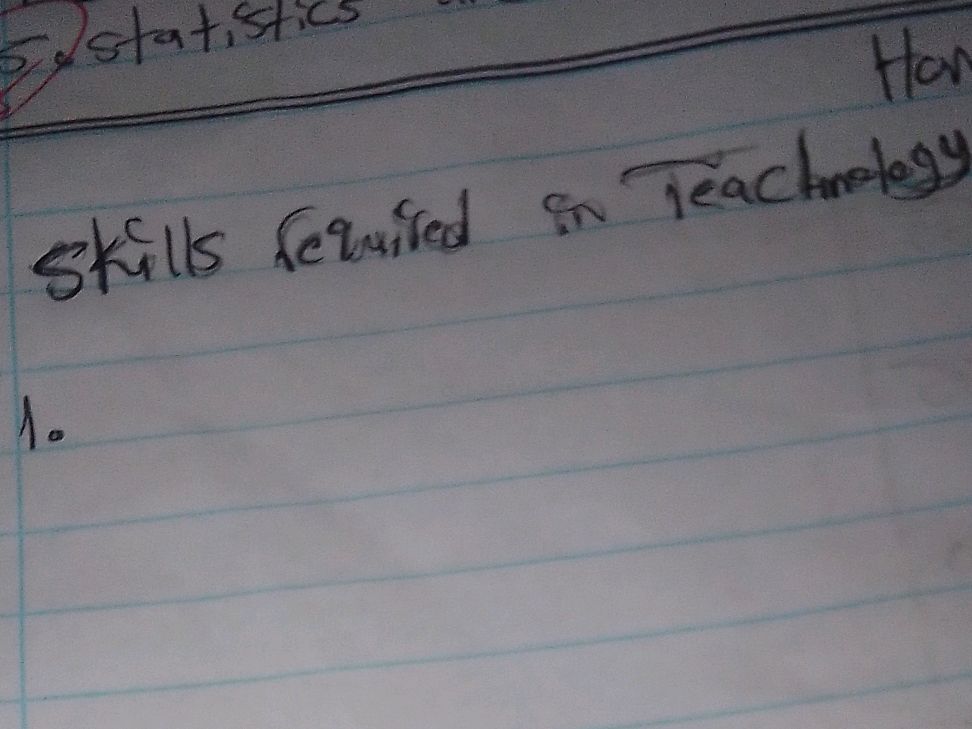 5. Statistics
Hom
Skills required in Teachnology
1.